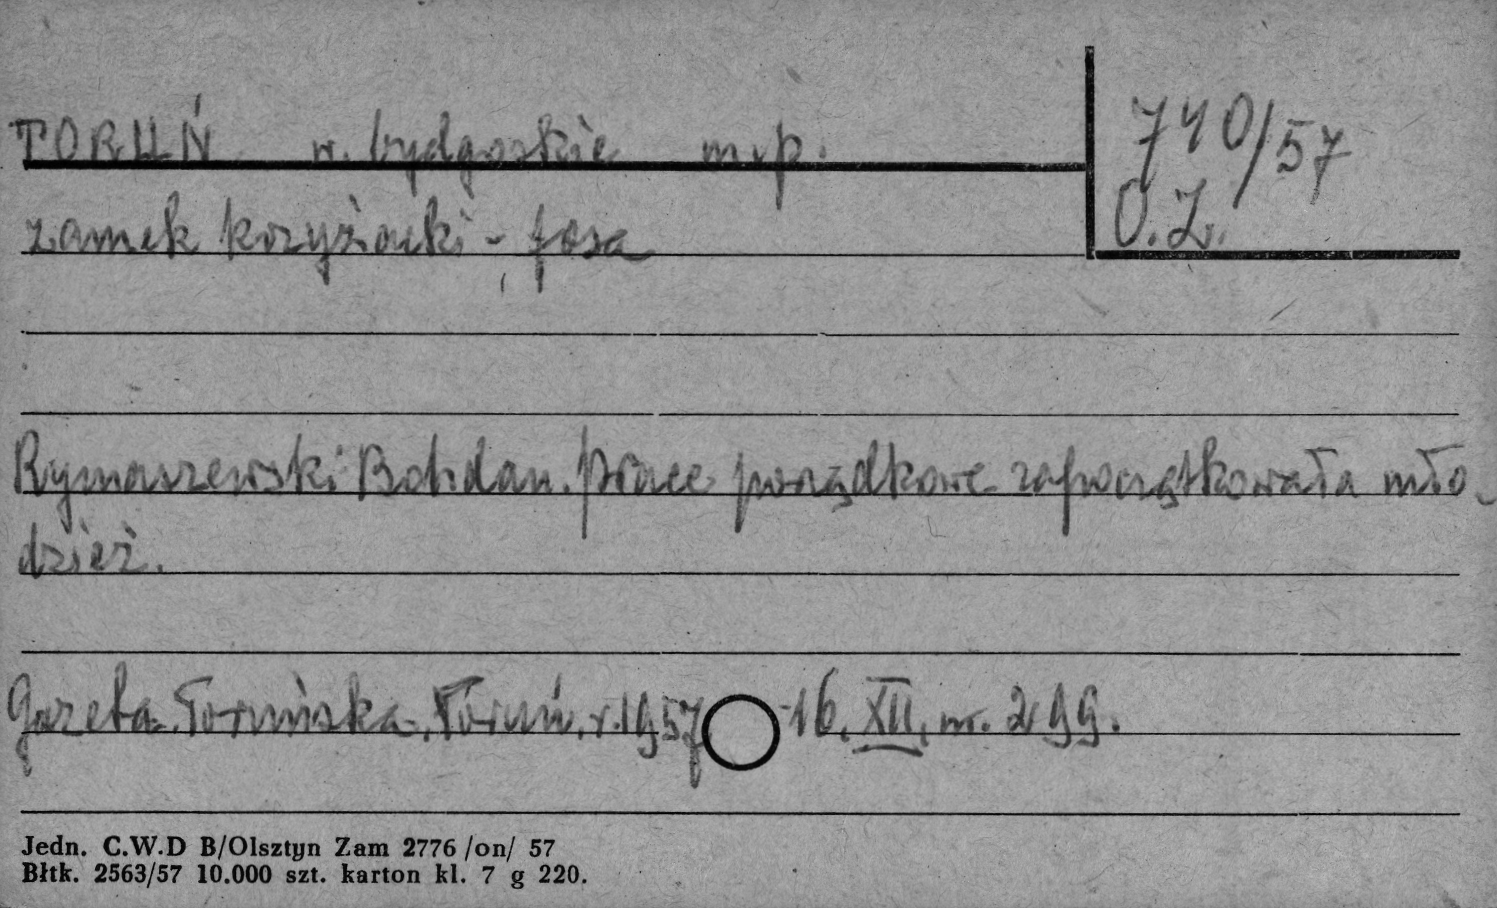 TORUŃ w. bydgoskie m.p.
740/57
O.Z.
zamek krzyżacki - fosa
Rymaszewski Bohdan. Prace porządkowe zapoczątkowała mło-
dzież.
Gazeta Toruńska, Toruń, r. 1957 - 16. XII, nr. 299.
Jedn. C.W.D B/Olsztyn Zam 2776 /on/ 57
Błtk. 2563/57 10.000 szt. karton kl. 7 g 220.